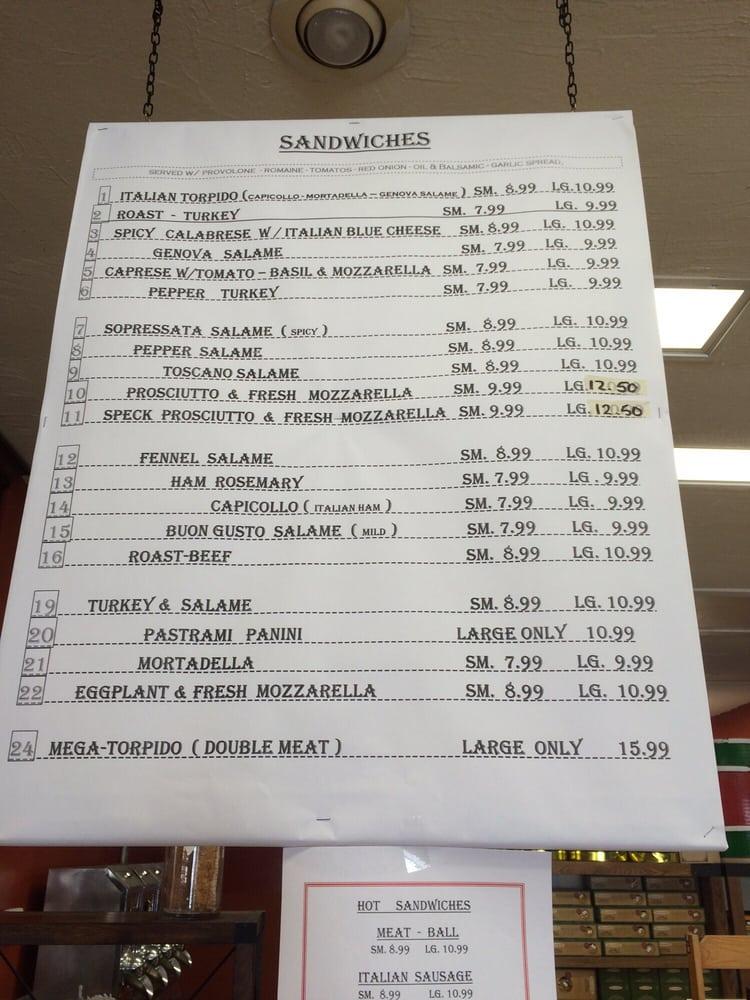 SANDWICHES
SERVED W/ PROVOLONE - ROMAINE - TOMATOS - RED ONION - OIL & BALSAMIC - GARLIC SPREAD.
1 ITALIAN TORPIDO (CAPICOLLO - MORTADELLA - GENOVA SALAME) SM. 8.99 LG. 10.99
2 ROAST - TURKEY SM. 7.99 LG. 9.99
3 SPICY CALABRESE W/ ITALIAN BLUE CHEESE SM. 8.99 LG. 10.99
4 GENOVA SALAME SM. 7.99 LG. 9.99
5 CAPRESE W/TOMATO - BASIL & MOZZARELLA SM. 7.99 LG. 9.99
6 PEPPER TURKEY SM. 7.99 LG. 9.99
7 SOPRESSATA SALAME ( SPICY ) SM. 8.99 LG. 10.99
8 PEPPER SALAME SM. 8.99 LG. 10.99
9 TOSCANO SALAME SM. 8.99 LG. 10.99
10 PROSCIUTTO & FRESH MOZZARELLA SM. 9.99 LG. 12.50
11 SPECK PROSCIUTTO & FRESH MOZZARELLA SM. 9.99 LG. 12.50
12 FENNEL SALAME SM. 8.99 LG. 10.99
13 HAM ROSEMARY SM. 7.99 LG . 9.99
14 CAPICOLLO ( ITALIAN HAM ) SM. 7.99 LG. 9.99
15 BUON GUSTO SALAME ( MILD ) SM. 7.99 LG. 9.99
16 ROAST-BEEF SM. 8.99 LG. 10.99
19 TURKEY & SALAME SM. 8.99 LG. 10.99
20 PASTRAMI PANINI LARGE ONLY 10.99
21 MORTADELLA SM. 7.99 LG. 9.99
22 EGGPLANT & FRESH MOZZARELLA SM. 8.99 LG. 10.99
24 MEGA-TORPIDO ( DOUBLE MEAT ) LARGE ONLY 15.99
HOT SANDWICHES
MEAT - BALL
SM. 8.99 LG. 10.99
ITALIAN SAUSAGE
SM. 8.99 LG. 10.99